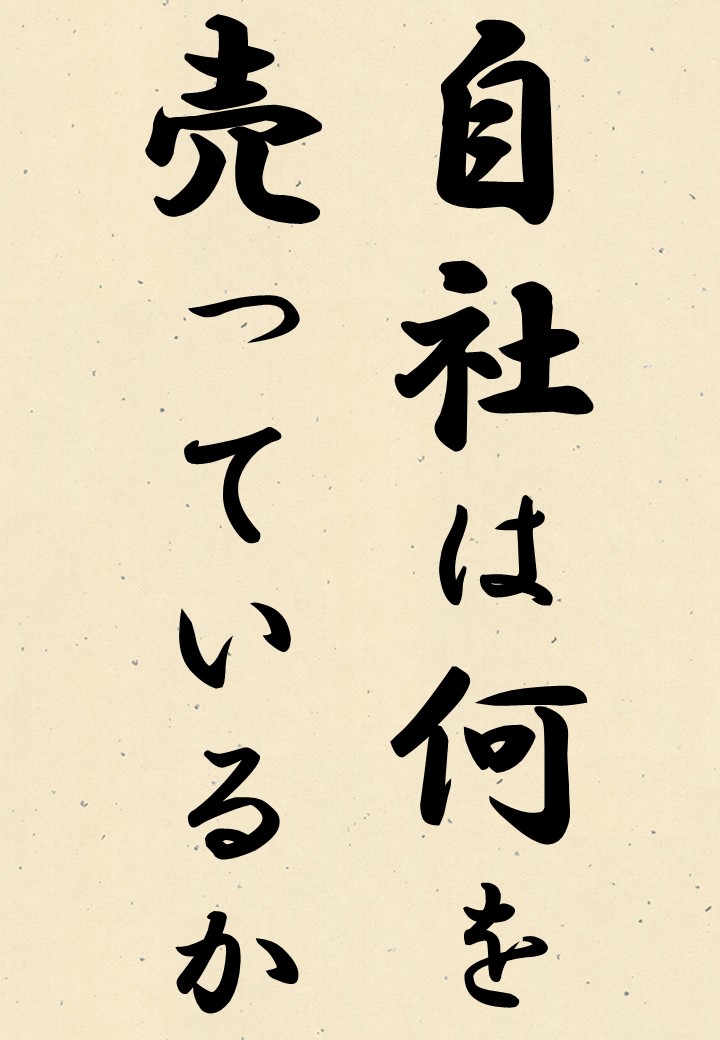 自社は何を
売っているか